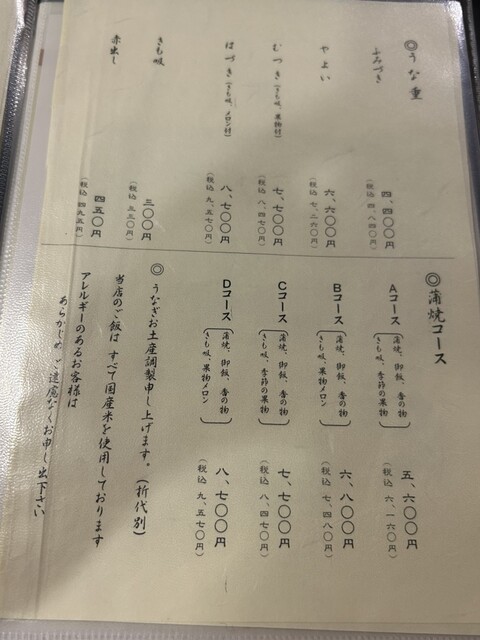 ◎うな重
ふみづき 四、四〇〇円
(税込 四、八四〇円)
やよい 六、六〇〇円
(税込 七、二六〇円)
むつき(きも吸、果物付) 七、七〇〇円
(税込 八、四七〇円)
はづき(きも吸、メロン付) 八、七〇〇円
(税込 九、五七〇円)
きも吸 三〇〇円
(税込 三三〇円)
赤出し 四五〇円
(税込 四九五円)
◎蒲焼コース
Aコース 蒲焼、御飯、香の物 五、六〇〇円
きも吸、季節の果物 (税込 六、一六〇円)
Bコース 蒲焼、御飯、香の物 六、八〇〇円
きも吸、季節の果物 (税込 七、四八〇円)
Cコース 蒲焼、御飯、香の物 七、七〇〇円
きも吸、季節の果物 (税込 八、四七〇円)
Dコース 蒲焼、御飯、香の物 八、七〇〇円
きも吸、果物メロン (税込 九、五七〇円)
◎うなぎお土産調製申し上げます。(折代別)
当店のご飯は すべて国産米を使用しております
アレルギーのあるお客様は
あらかじめご遠慮なくお申し出下さい